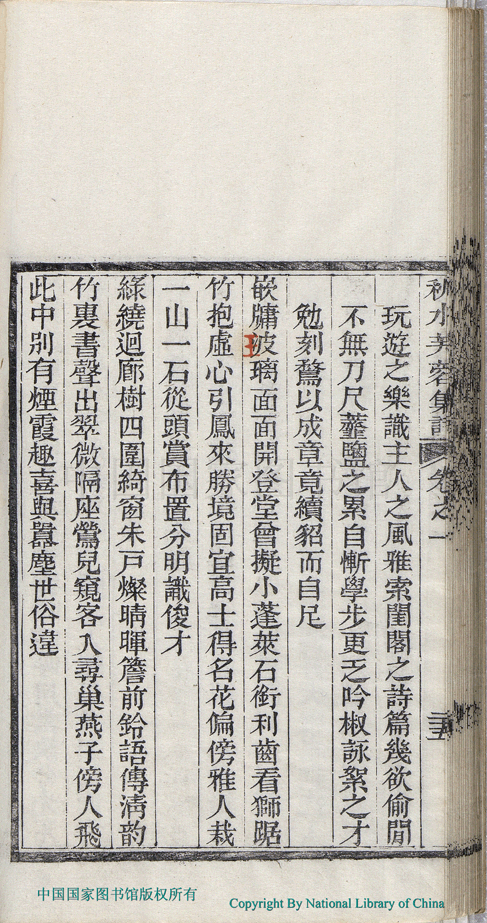 秋水芙蓉集詩 卷之一
玩遊之樂識主人之風雅索閨閣之詩篇幾欲偷閒
不無刀尺虀鹽之累自慚學步更乏吟椒詠絮之才
勉刻鶩以成章竟續貂而自足
嵌牗玻璃面面開登堂曾擬小蓬萊石銜利齒看獅踞
竹抱虛心引鳳來勝境固宜高士得名花偏傍雅人栽
一山一石從頭賞布置分明識俊才
綠繞迴廊樹四圍綺窗朱戸燦晴暉簷前鈴語傳淸韵
竹裏書聲出翠微隔座鶯兒窺客入尋巢燕子傍人飛
此中別有煙霞趣喜與囂塵世俗違
中国国家图书馆版权所有
Copyright By National Library of China